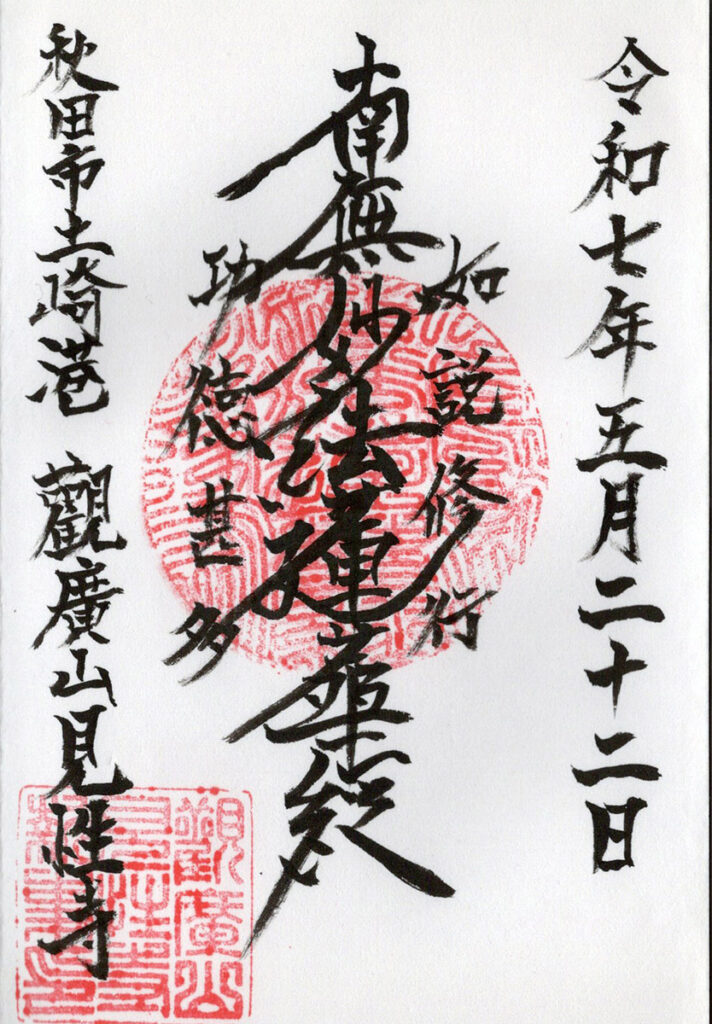 令和七年五月二十二日
如説修行
南無妙法蓮華経
功徳甚多
秋田市土崎港 觀廣山見性寺